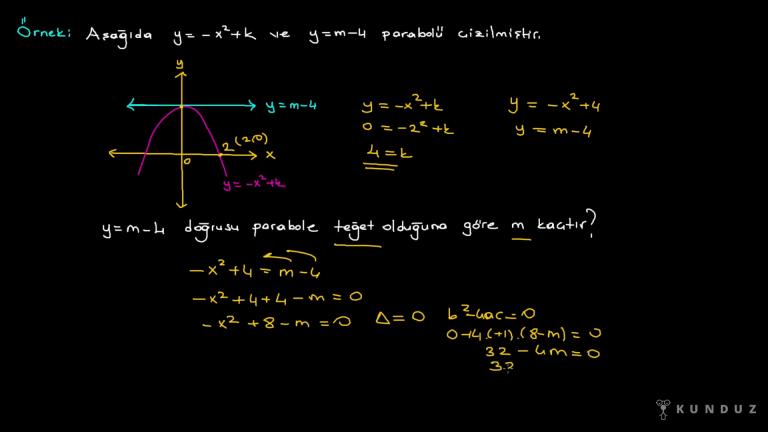 Örnek: Aşağıda y = -x²+k ve y=m-4 parabolü çizilmiştir.
y
y = m-4
2 (2,0)
0
x
y = -x²+k
y = -x²+k
0 = -2²+k
4 = k
y = -x²+4
y = m-4
y=m-4 doğrusu parabole teğet olduğuna göre m kaçtır?
-x²+4 = m-4
-x²+4+4-m = 0
-x²+8-m = 0 Δ = 0 b²-4ac = 0
0+4.(+1).(8-m) = 0
32 - 4m = 0
32
KUNDUZ